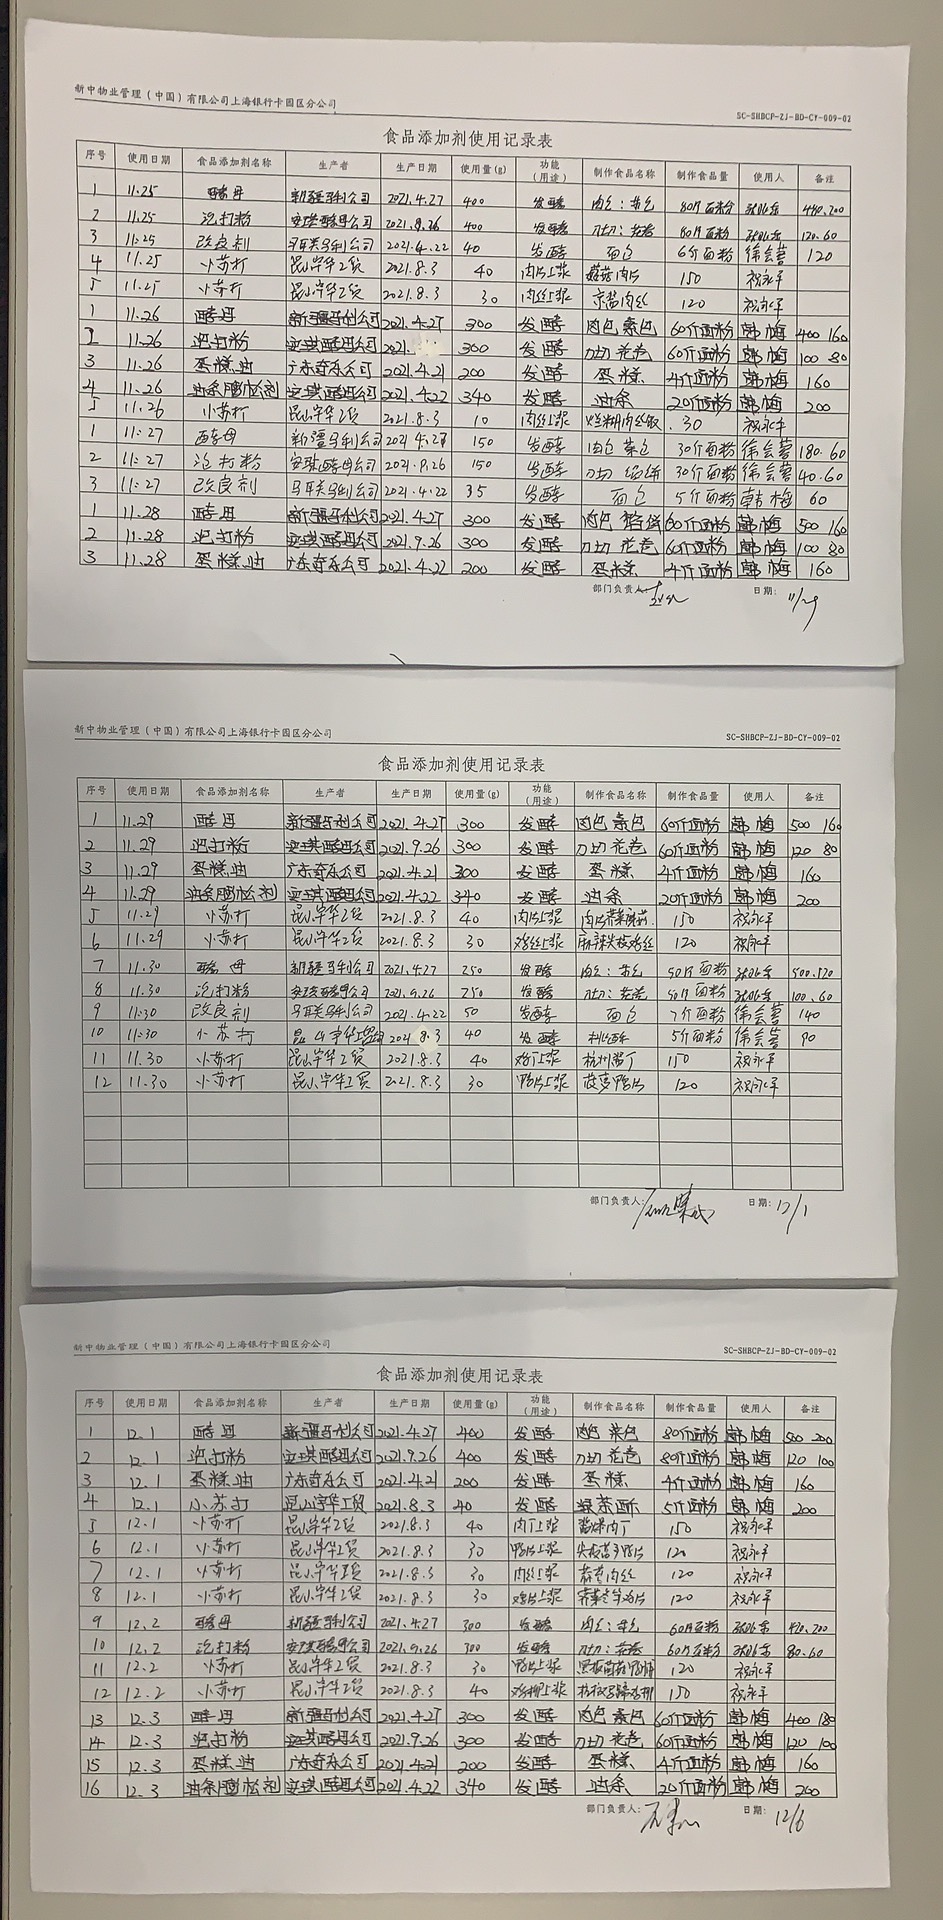 新中物业管理（中国）有限公司上海银行卡园区分公司 SC-SHBCP-ZJ-BD-CY-009-02
食品添加剂使用记录表
序号 使用日期 食品添加剂名称 生产者 生产日期 使用量(g) 功能（用途） 制作食品名称 制作食品量 使用人 备注
1 11.25 酵母 新疆马利公司 2021.4.27 400 发酵 80斤面粉 480.200
2 11.25 泡打粉 安琪酵母公司 2021.9.26 400 发酵 刀切:花卷 80斤面粉 120.60
3 11.25 改良剂 马联马利公司 2021.4.22 40 发酵 面包 6斤面粉 徐会菩 120
4 11.25 小苏打 昆山宇华工贸 2021.8.3 40 肉片上浆 蘑菇肉片 150 祝永平
5 11.25 小苏打 昆山宇华工贸 2021.8.3 30 肉丝上浆 京酱肉丝 120 祝永平
1 11.26 酵母 新疆马利公司 2021.4.27 300 发酵 肉包 素包 60斤面粉 韩梅 400 160
2 11.26 泡打粉 安琪酵母公司 2021. 300 发酵 刀切 花卷 60斤面粉 韩梅 100 80
3 11.26 蛋糕油 广东奇乐公司 2021.4.21 200 发酵 蛋糕 4斤面粉 韩梅 160
4 11.26 油条膨松剂 安琪酵母公司 2021.4.22 340 发酵 油条 20斤面粉 韩梅 200
5 11.26 小苏打 昆山宇华工贸 2021.8.3 10 肉丝上浆 30 祝永平
1 11.27 酵母 新疆马利公司 2021.4.27 150 发酵 肉包 菜包 30斤面粉 徐会菩 180.60
2 11.27 泡打粉 安琪酵母公司 2021.9.26 150 发酵 刀切 30斤面粉 徐会菩 40.60
3 11.27 改良剂 马联马利公司 2021.4.22 35 发酵 面包 5斤面粉 韩梅 60
1 11.28 酵母 新疆马利公司 2021.4.27 300 发酵 肉包 60斤面粉 韩梅 500 160
2 11.28 泡打粉 安琪酵母公司 2021.9.26 300 发酵 刀切 花卷 60斤面粉 韩梅 100 80
3 11.28 蛋糕油 广东奇乐公司 2021.4.22 200 发酵 蛋糕 4斤面粉 韩梅 160
部门负责人: 日期: 11/29
新中物业管理（中国）有限公司上海银行卡园区分公司 SC-SHBCP-ZJ-BD-CY-009-02
食品添加剂使用记录表
序号 使用日期 食品添加剂名称 生产者 生产日期 使用量(g) 功能（用途） 制作食品名称 制作食品量 使用人 备注
1 11.29 酵母 新疆马利公司 2021.4.27 300 发酵 肉包 素包 60斤面粉 韩梅 500 160
2 11.29 泡打粉 安琪酵母公司 2021.9.26 300 发酵 刀切 花卷 60斤面粉 韩梅 120 80
3 11.29 蛋糕油 广东奇乐公司 2021.4.21 300 发酵 蛋糕 4斤面粉 韩梅 160
4 11.29 油条膨松剂 安琪酵母公司 2021.4.22 340 发酵 油条 20斤面粉 韩梅 200
5 11.29 小苏打 昆山宇华工贸 2021.8.3 40 肉片上浆 150 祝永平
6 11.29 小苏打 昆山宇华工贸 2021.8.3 30 鸡丝上浆 120 祝永平
7 11.30 酵母 新疆马利公司 2021.4.27 250 发酵 50斤面粉 500.120
8 11.30 泡打粉 安琪酵母公司 2021.9.26 250 发酵 刀切:花卷 50斤面粉 100.60
9 11:30 改良剂 马联马利公司 2021.4.22 50 发酵 面包 7斤面粉 徐会菩 140
10 11:30 小苏打 昆山宇华工贸 2021 8.3 40 发酵 5斤面粉 徐会菩 90
11 11.30 小苏打 昆山宇华工贸 2021.8.3 40 鸡丁上浆 150 祝永平
12 11.30 小苏打 昆山宇华工贸 2021.8.3 30 鸭片上浆 120 祝永平
部门负责人: 日期: 12/1
新中物业管理（中国）有限公司上海银行卡园区分公司 SC-SHBCP-ZJ-BD-CY-009-02
食品添加剂使用记录表
序号 使用日期 食品添加剂名称 生产者 生产日期 使用量(g) 功能（用途） 制作食品名称 制作食品量 使用人 备注
1 12.1 酵母 新疆马利公司 2021.4.27 400 发酵 肉包 菜包 80斤面粉 韩梅 500 200
2 12.1 泡打粉 安琪酵母公司 2021.9.26 400 发酵 刀切 花卷 80斤面粉 韩梅 120 100
3 12.1 蛋糕油 广东奇乐公司 2021.4.21 200 发酵 蛋糕 4斤面粉 韩梅 160
4 12.1 小苏打 昆山宇华工贸 2021.8.3 40 发酵 绿茶酥 5斤面粉 韩梅 200
5 12.1 小苏打 昆山宇华工贸 2021.8.3 40 肉丁上浆 酱爆肉丁 150 祝永平
6 12.1 小苏打 昆山宇华工贸 2021.8.3 30 鸭片上浆 120 祝永平
7 12.1 小苏打 昆山宇华工贸 2021.8.3 30 肉丝上浆 120 祝永平
8 12.1 小苏打 昆山宇华工贸 2021.8.3 30 鸡片上浆 120 祝永平
9 12.2 酵母 新疆马利公司 2021.4.27 300 发酵 60斤面粉 470.200
10 12.2 泡打粉 安琪酵母公司 2021.9.26 300 发酵 刀切:花卷 60斤面粉 80.60
11 12.2 小苏打 昆山宇华工贸 2021.8.3 30 鸭片上浆 120 祝永平
12 12.2 小苏打 昆山宇华工贸 2021.8.3 40 鸡柳上浆 150 祝永平
13 12.3 酵母 新疆马利公司 2021.4.27 300 发酵 肉包 素包 60斤面粉 韩梅 400 180
14 12.3 泡打粉 安琪酵母公司 2021.9.26 300 发酵 刀切 花卷 60斤面粉 韩梅 120 100
15 12.3 蛋糕油 广东奇乐公司 2021.4.21 200 发酵 蛋糕 4斤面粉 韩梅 160
16 12.3 油条膨松剂 安琪酵母公司 2021.4.22 340 发酵 油条 20斤面粉 韩梅 200
部门负责人: 日期: 12/6